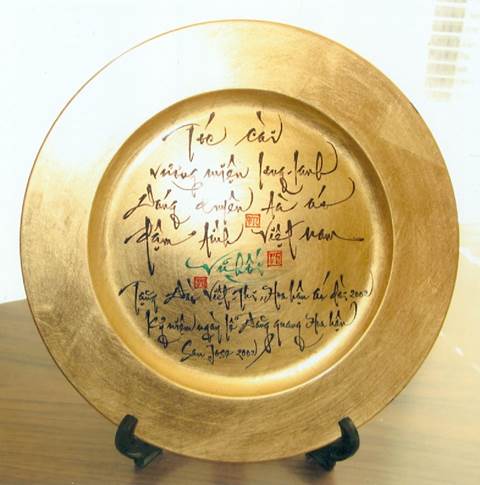 Tóc cài
vương miện long lanh
Dáng quyện tà áo
đậm tình Việt Nam
Vũ Hối
Tặng Đỗ Việt Thi, Hoa hậu áo dài 2002
Kỷ niệm ngày lễ Đăng quang Hoa hậu
San Jose 2002